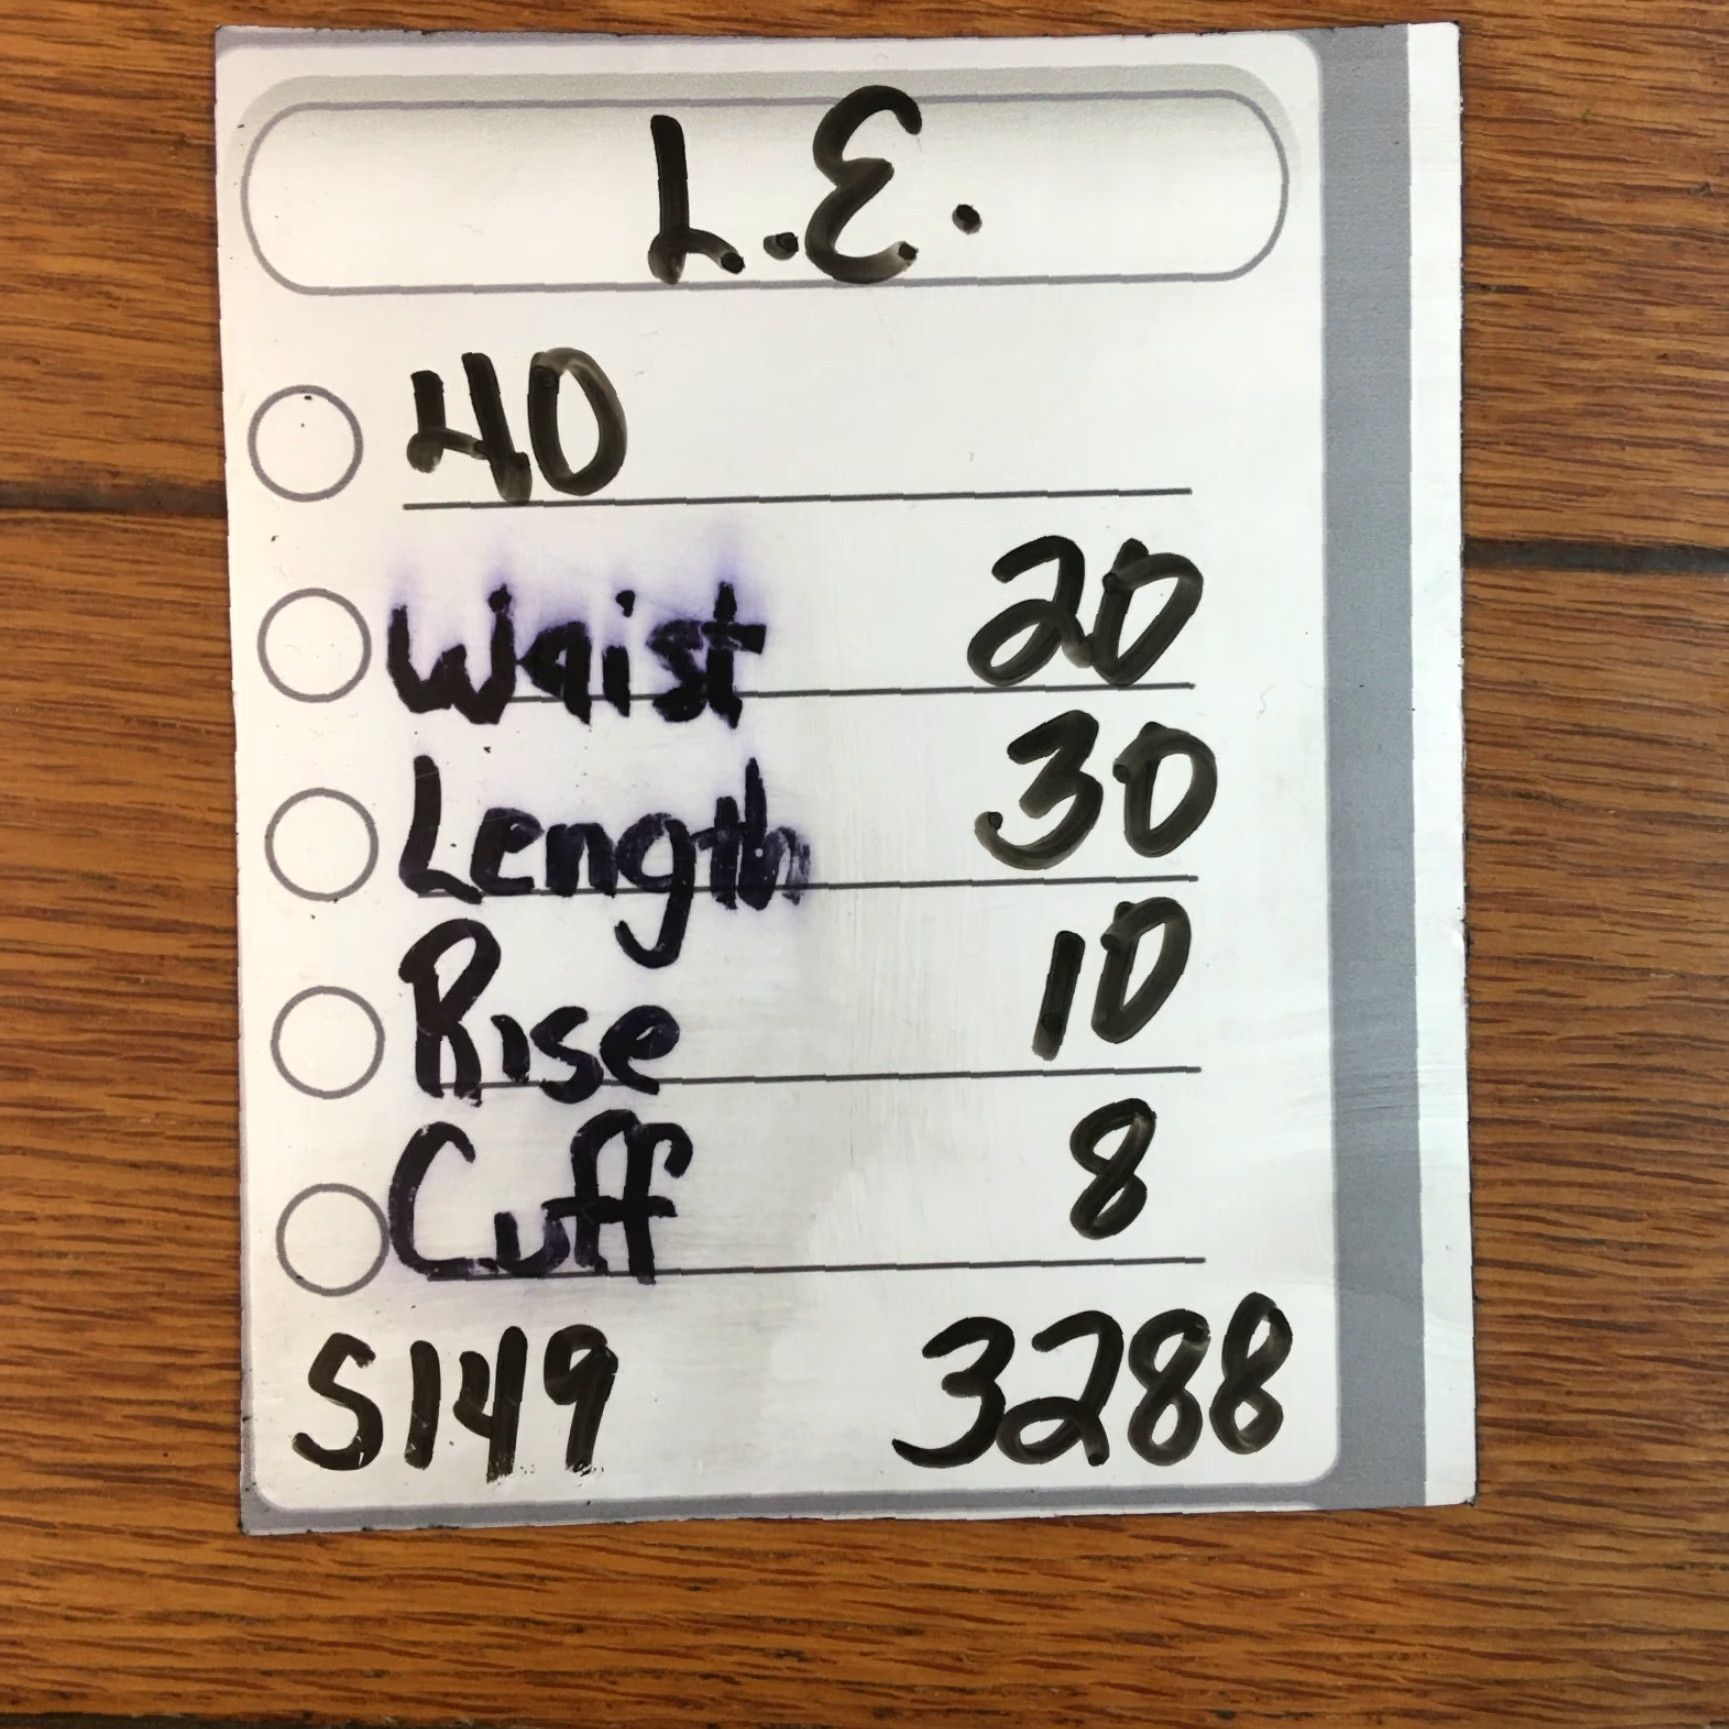 L.E.
40
Waist 20
Length 30
Rise 10
Cuff 8
S149 3288